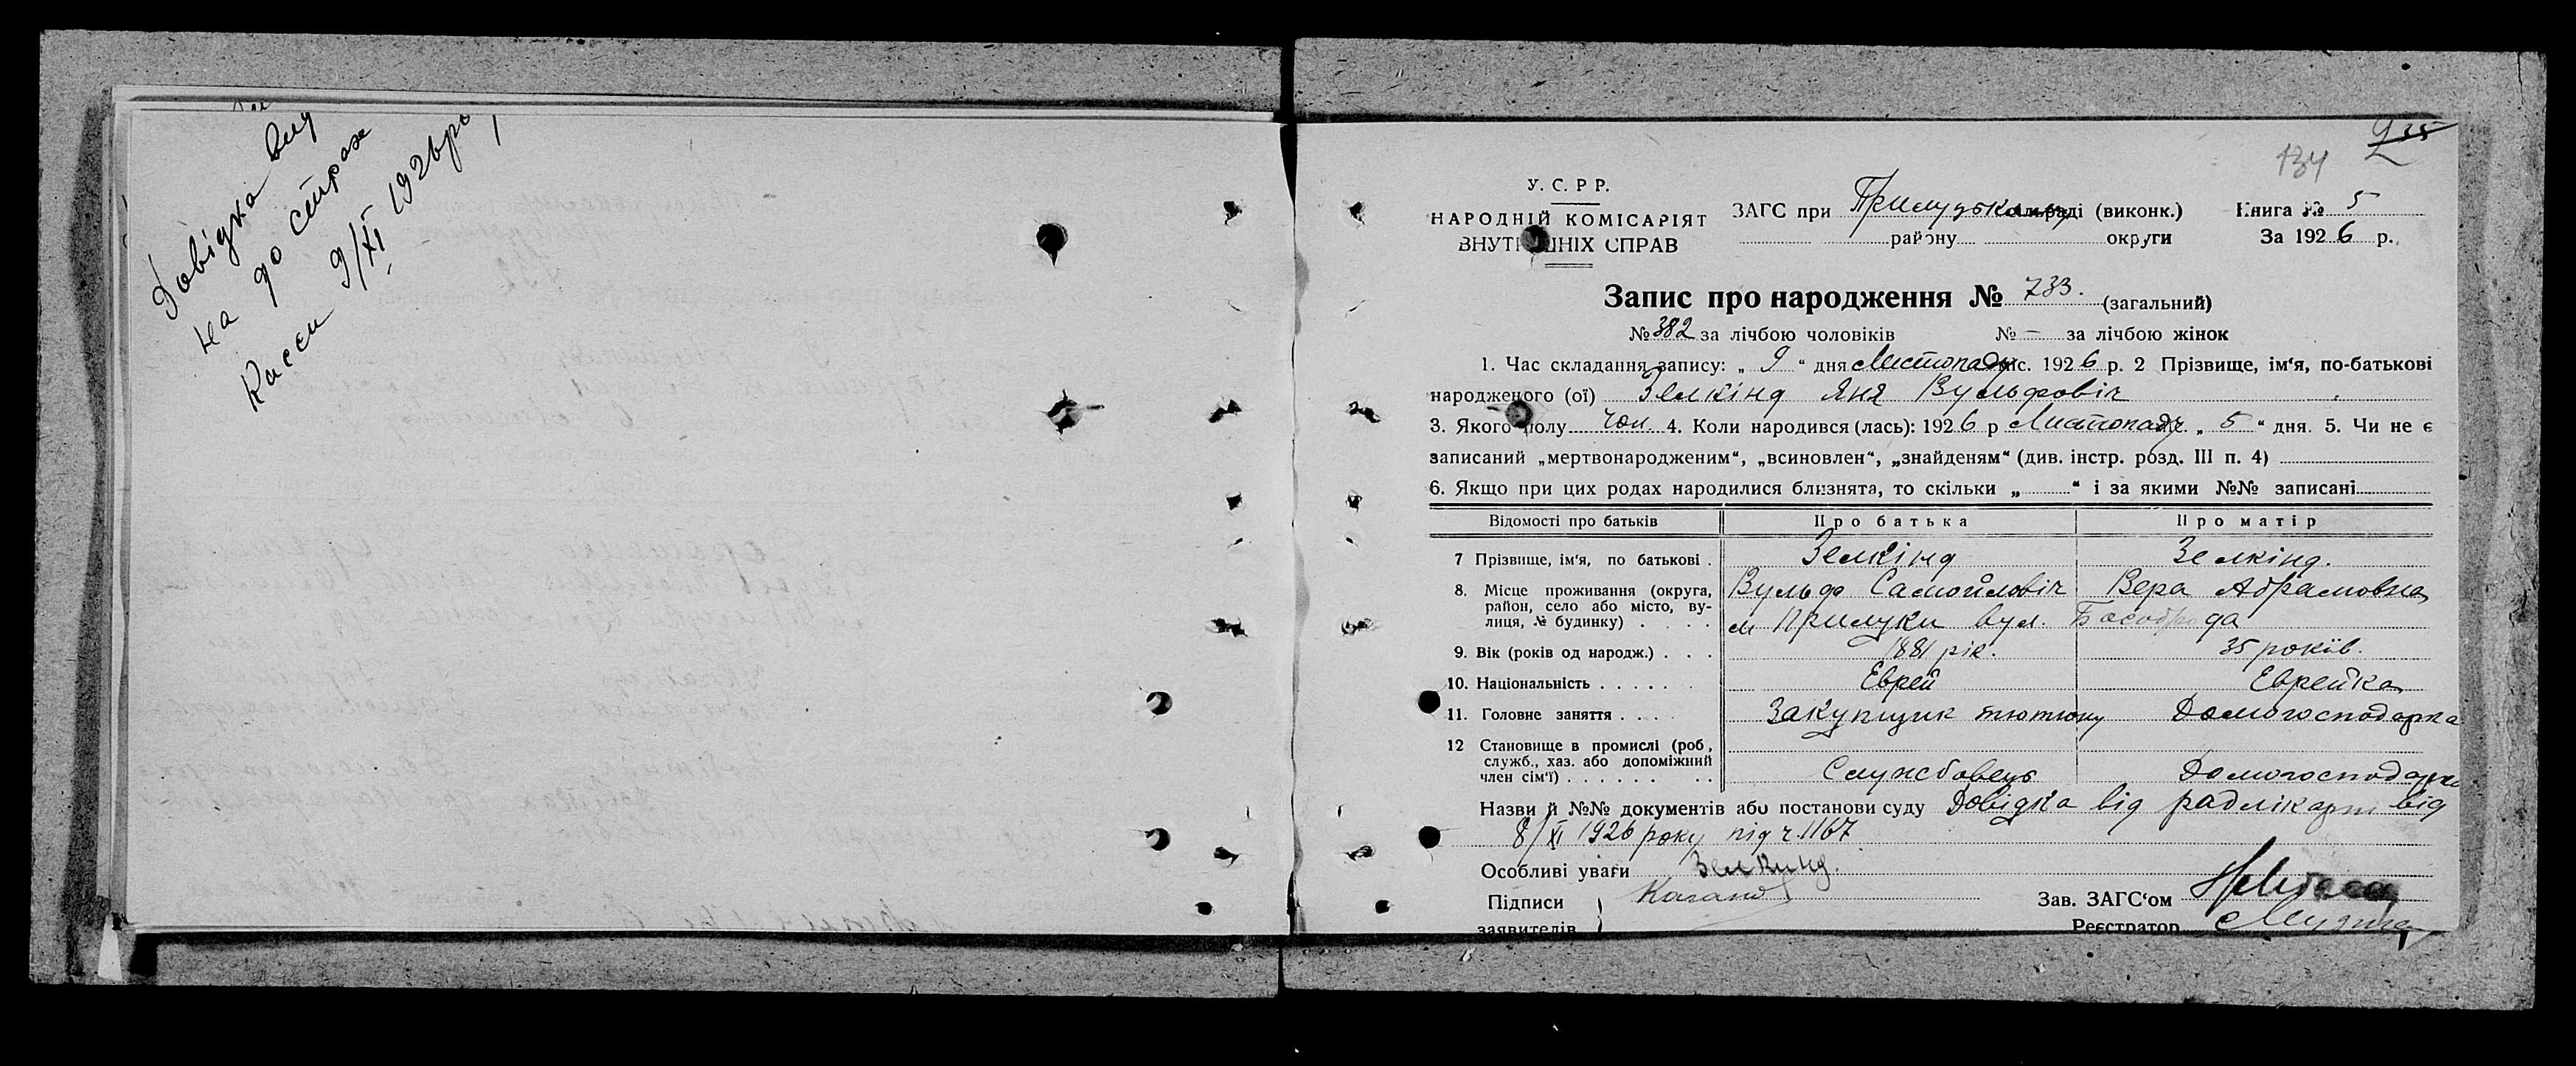 Довідка вид
на до страх
Касси 9/XI 1926 ро
134
У. С. Р Р.
НАРОДНІЙ КОМІСАРІЯТ
ВНУТРІШНІХ СПРАВ
ЗАГС при Прилуцькому раді (виконк.) Книга № 5
району округи За 1926 р.
Запис про народження № 733. (загальний)
№ 382 за лічбою чоловіків № — за лічбою жінок
1. Час складання запису: „ 9 “ дня Листопаду міс. 1926 р. 2 Прізвище, ім‘я, по-батькові
народженого (ої) Зелкінд Яня Вульфовіч
3. Якого полу чол. 4. Коли народився (лась): 1926 р Листопаду „ 5 “ дня. 5. Чи не є
записаний „мертвонародженим“, „всиновлен“, „знайденям“ (див. інстр. розд. III п. 4)
6. Якщо при цих родах народилися близнята, то скільки „ “ і за якими №№ записані
Відомості про батьків Про батька Про матір
7 Прізвище, ім‘я, по батькові . Зелкінд Зелкінд.
8. Місце проживання (округа, Вульф Самойловіч Вера Абрамовна
район, село або місто, ву-
лиця, № будинку) . . . . м Прилуки вул.
9. Вік (років од народж.) . . . 1881 рік. 35 років.
10. Національність . . . . . . Еврей Еврейка
11. Головне заняття . . . . Закупщик тютюну Домогосподарка
12 Становище в промислі (роб,
служб., хаз. або допоміжний
член сім‘ї) . . . . . . . . Службовець Домогосподарка
Назви й №№ документів або постанови суду Довідка від радлікарт від
8/XI 1926 року під ч. 1167
Особливі уваги Зелкинд.
Підписи Зав. ЗАГС‘ом
заявителів Реєстратор